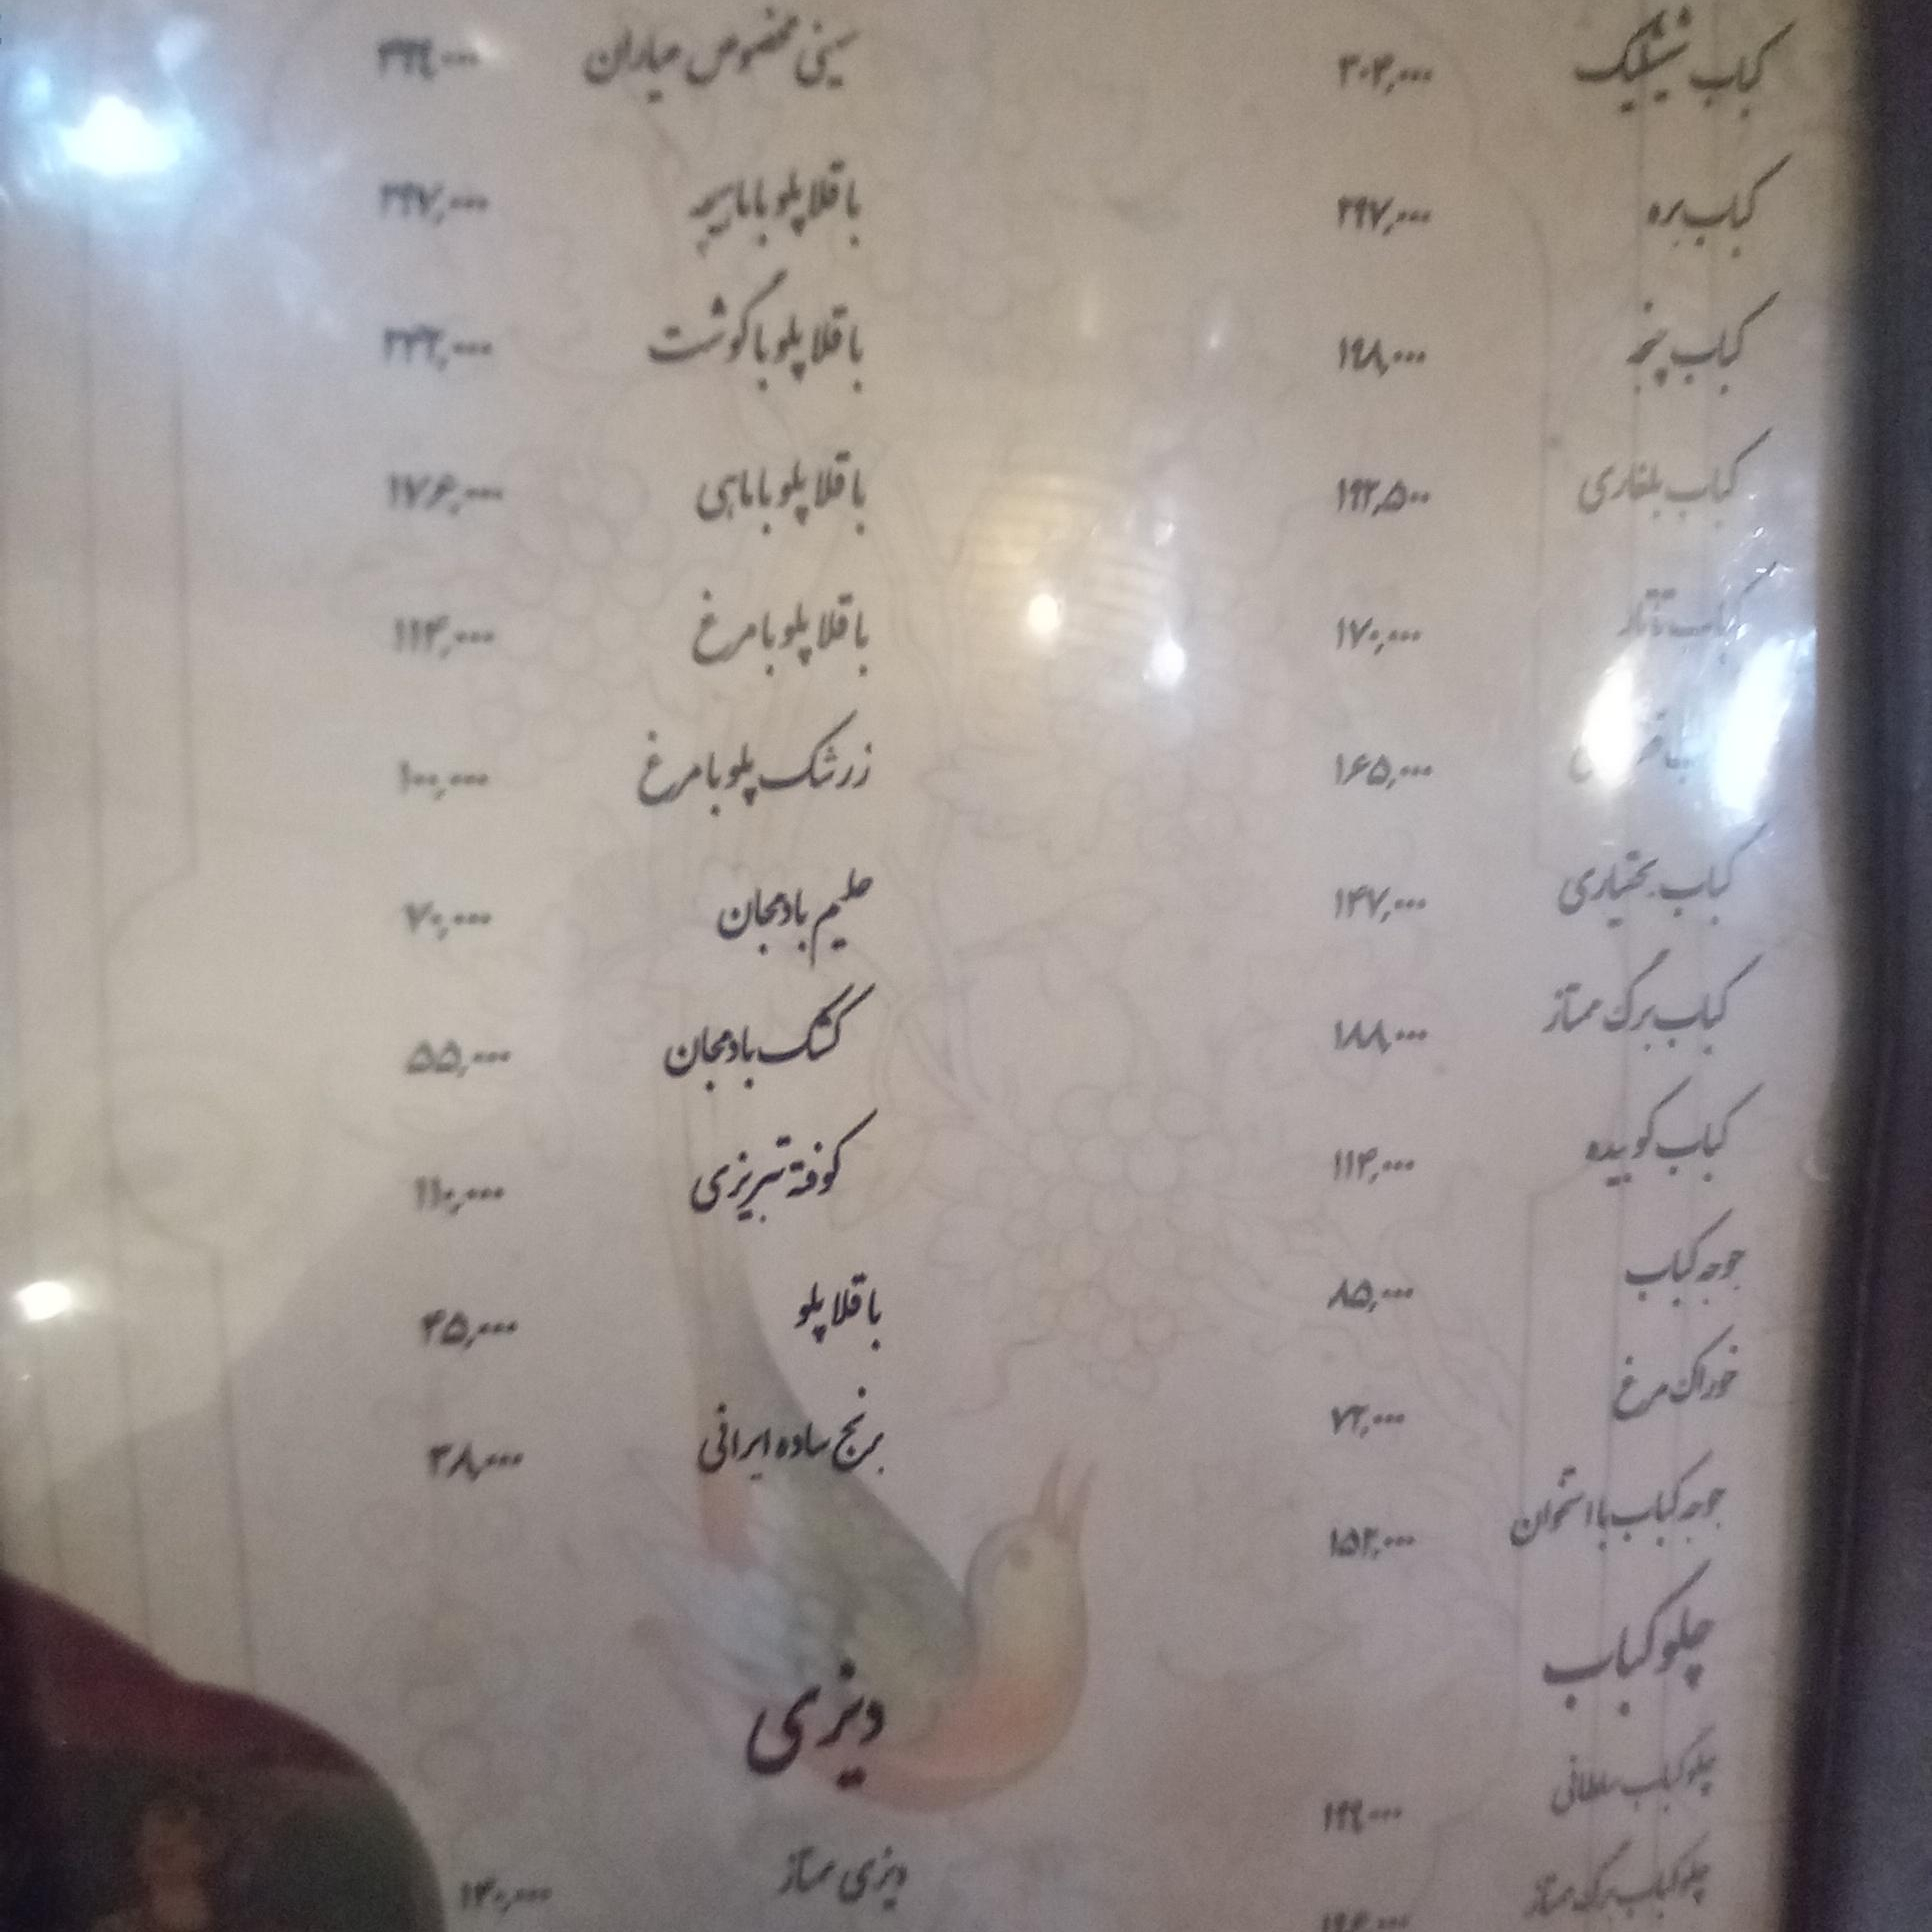 کباب شیشلیک ۳۰۴,۰۰۰
کباب بره ۲۹۷,۰۰۰
کباب پنجه ۱۹۸,۰۰۰
کباب بلغاری ۱۹۲,۵۰۰
کباب تاتار ۱۷۰,۰۰۰
۱۶۵,۰۰۰
کباب بختیاری ۱۴۷,۰۰۰
کباب برگ ممتاز ۱۸۸,۰۰۰
کباب کوبیده ۱۱۴,۰۰۰
جوجه کباب ۸۵,۰۰۰
خوراک مرغ ۷۲,۰۰۰
جوجه کباب با استخوان ۱۵۲,۰۰۰
چلوکباب
چلوکباب سلطانی
چلوکباب برگ ممتاز
سینی مخصوص عیاران
باقلا پلو با ماهیچه ۲۹۷,۰۰۰
باقلا پلو با گوشت
باقلا پلو با ماهی ۱۷۶,۰۰۰
باقلا پلو با مرغ ۱۱۴,۰۰۰
زرشک پلو با مرغ ۱۰۰,۰۰۰
حلیم بادمجان ۷۰,۰۰۰
کشک بادمجان ۵۵,۰۰۰
کوفته تبریزی ۱۱۰,۰۰۰
باقلا پلو ۴۵,۰۰۰
برنج ساده ایرانی ۳۸,۰۰۰
دیزی
دیزی ممتاز ۱۴۰,۰۰۰